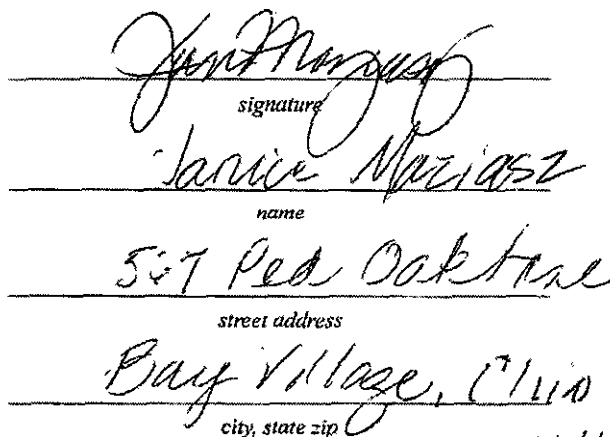 signature
Janice Maziasz
name
Red Oak Lane
street address
Bay Village, Ohio
city, state zip